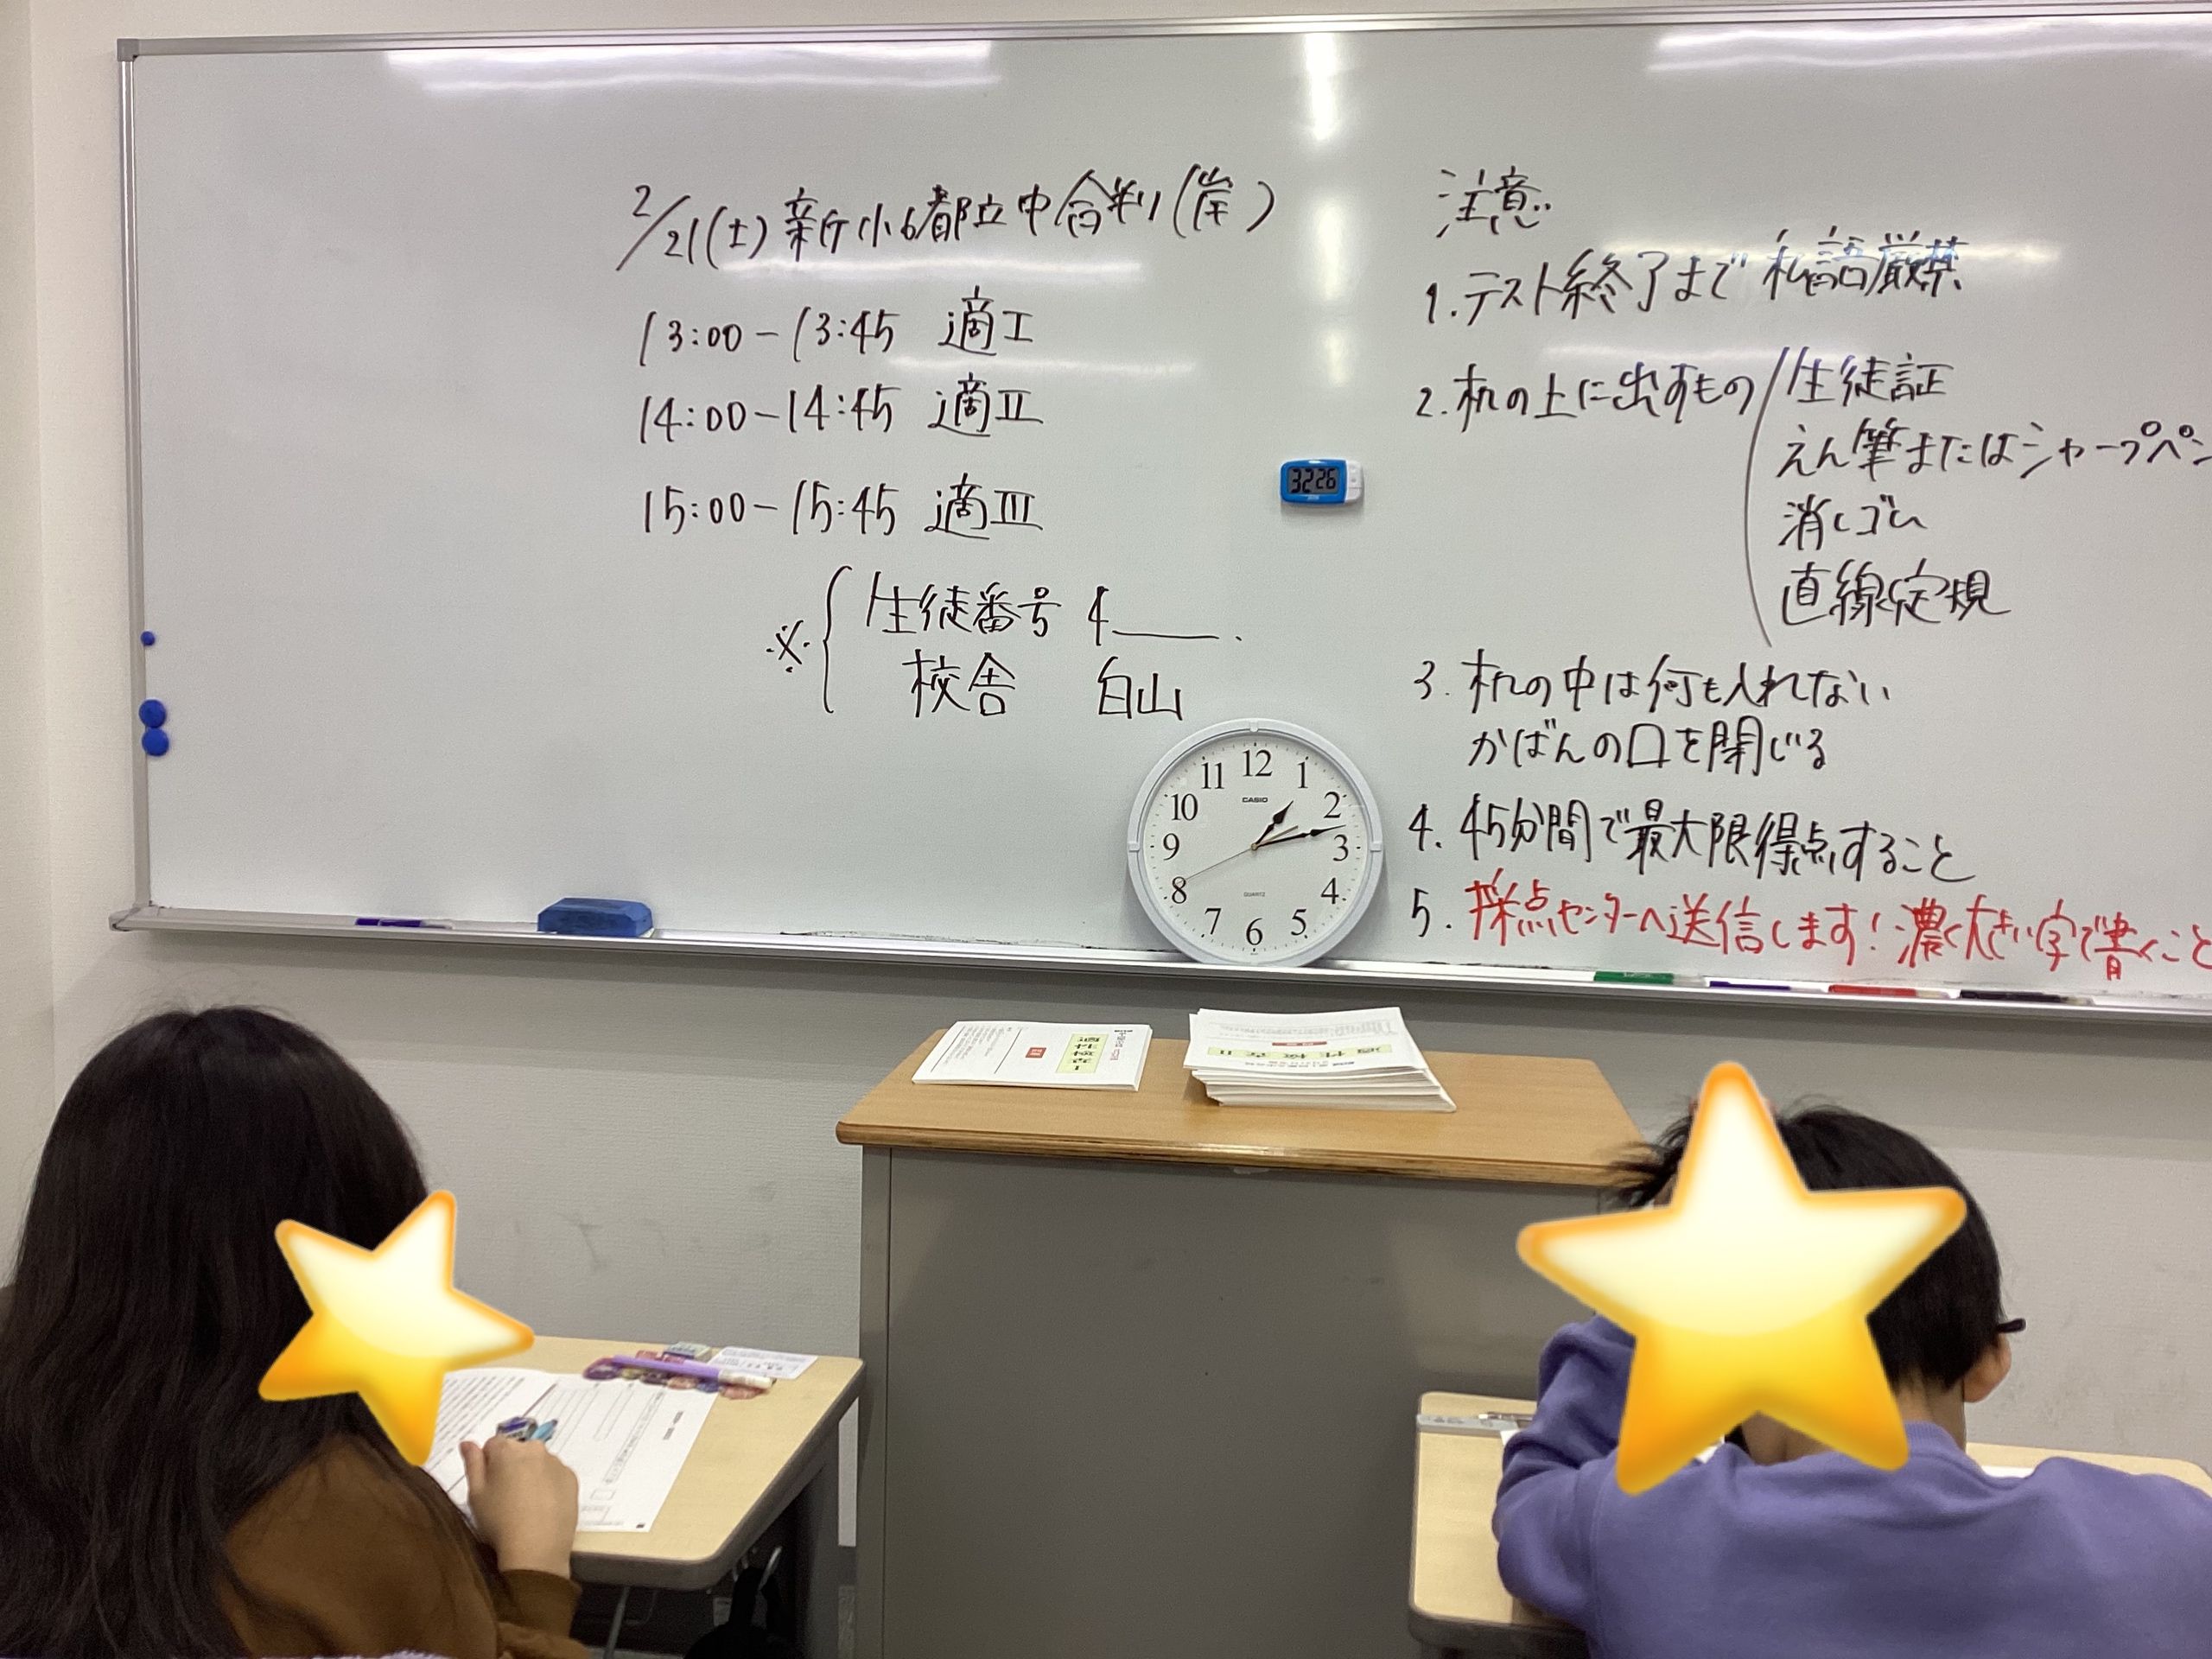 2/21(土) 新小6都立中合判(岸)
13:00-13:45 適Ⅰ
14:00-14:45 適Ⅱ
15:00-15:45 適Ⅲ
※ 生徒番号 4
校舎 白山
注意
1. テスト終了まで私語厳禁
2. 机の上に出すもの 生徒証
えん筆またはシャープペン
消しゴム
直線定規
3. 机の中は何も入れない
かばんの口を閉じる
4. 45分間で最大限得点すること
5. 採点センターへ送信します!濃く大きい字で書くこと
3226
12
11 1
10 2
CASIO
9 3
8 4
QUARTZ
7 5
6
適性検査Ⅱ